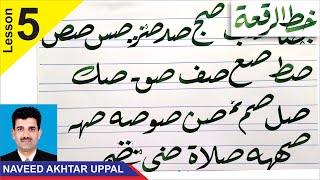 Lesson 5
خط الرقعة
صج صد صر صس صص
صط صع صف صق صك
صل صم صن صو صه صہ
صلاة صى
NAVEED AKHTAR UPPAL